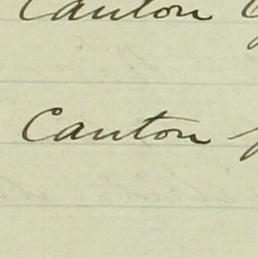 Canton
Canton